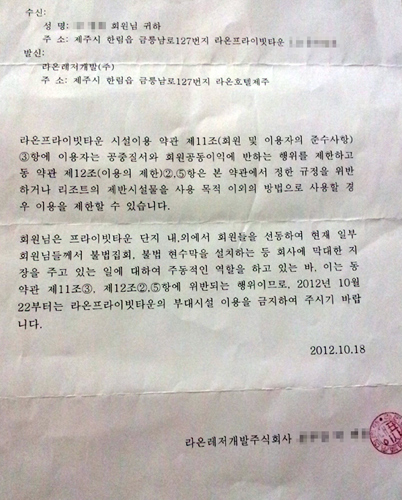 수신:
성 명: 회원님 귀하
주 소: 제주시 한림읍 금릉남로127번지 라온프라이빗타운
발신:
라온레저개발(주)
주 소: 제주시 한림읍 금릉남로127번지 라온호텔제주
라온프라이빗타운 시설이용 약관 제11조(회원 및 이용자의 준수사항)
③항에 이용자는 공중질서와 회원공동이익에 반하는 행위를 제한하고
동 약관 제12조(이용의 제한)②,⑤항은 본 약관에서 정한 규정을 위반
하거나 리조트의 제반시설물을 사용 목적 이외의 방법으로 사용할 경
우 이용을 제한할 수 있습니다.
회원님은 프라이빗타운 단지 내,외에서 회원들을 선동하여 현재 일부
회원님들께서 불법집회, 불법 현수막을 설치하는 등 회사에 막대한 지
장을 주고 있는 일에 대하여 주동적인 역할을 하고 있는 바, 이는 동
약관 제11조③, 제12조②,⑤항에 위반되는 행위이므로, 2012년 10월
22부터는 라온프라이빗타운의 부대시설 이용을 금지하여 주시기 바랍
니다.
2012.10.18
라온레저개발주식회사